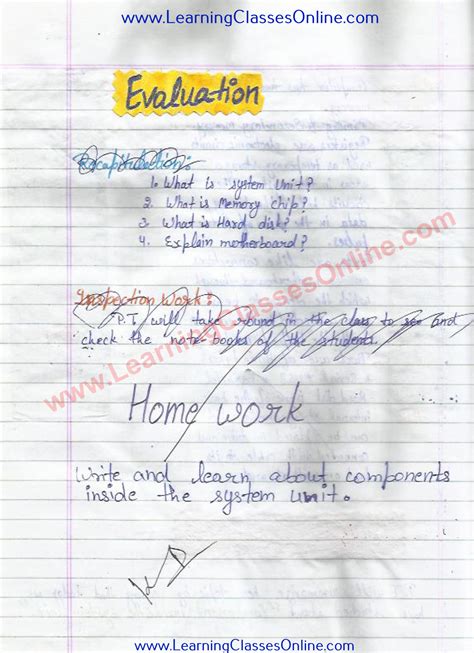 www.LearningClassesOnline.com
Evaluation
Recapitulation:
1. What is system unit?
2. What is Memory chip?
3. What is Hard disk?
4. Explain motherboard?
www.LearningClassesOnline.com
Inspection Work:
P.T will take round in the class to see and
check the note-books of the students.
Home work
Write and learn about components
inside the system unit.
www.LearningClassesOnline.com